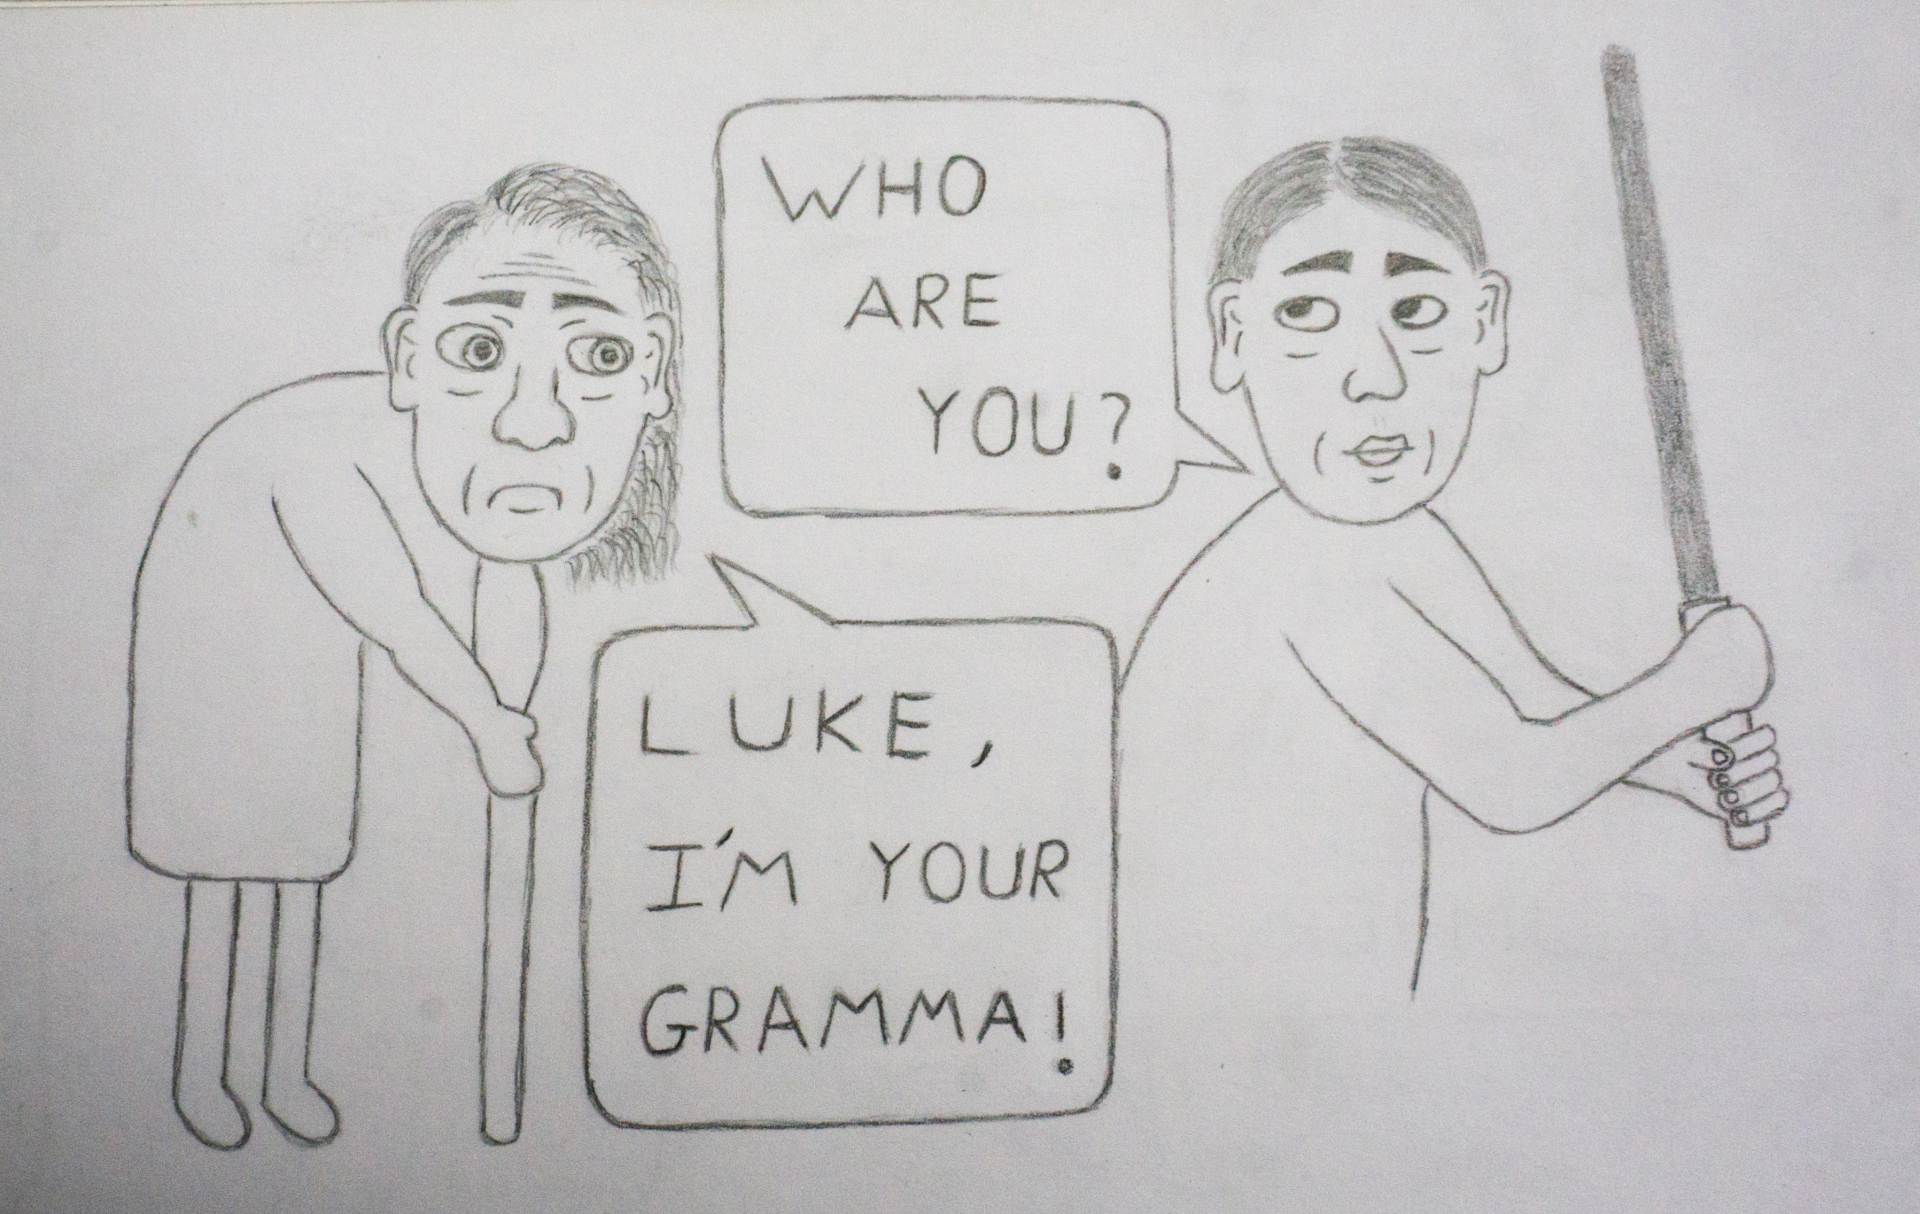 WHO
ARE
YOU?
LUKE,
I'M YOUR
GRAMMA!